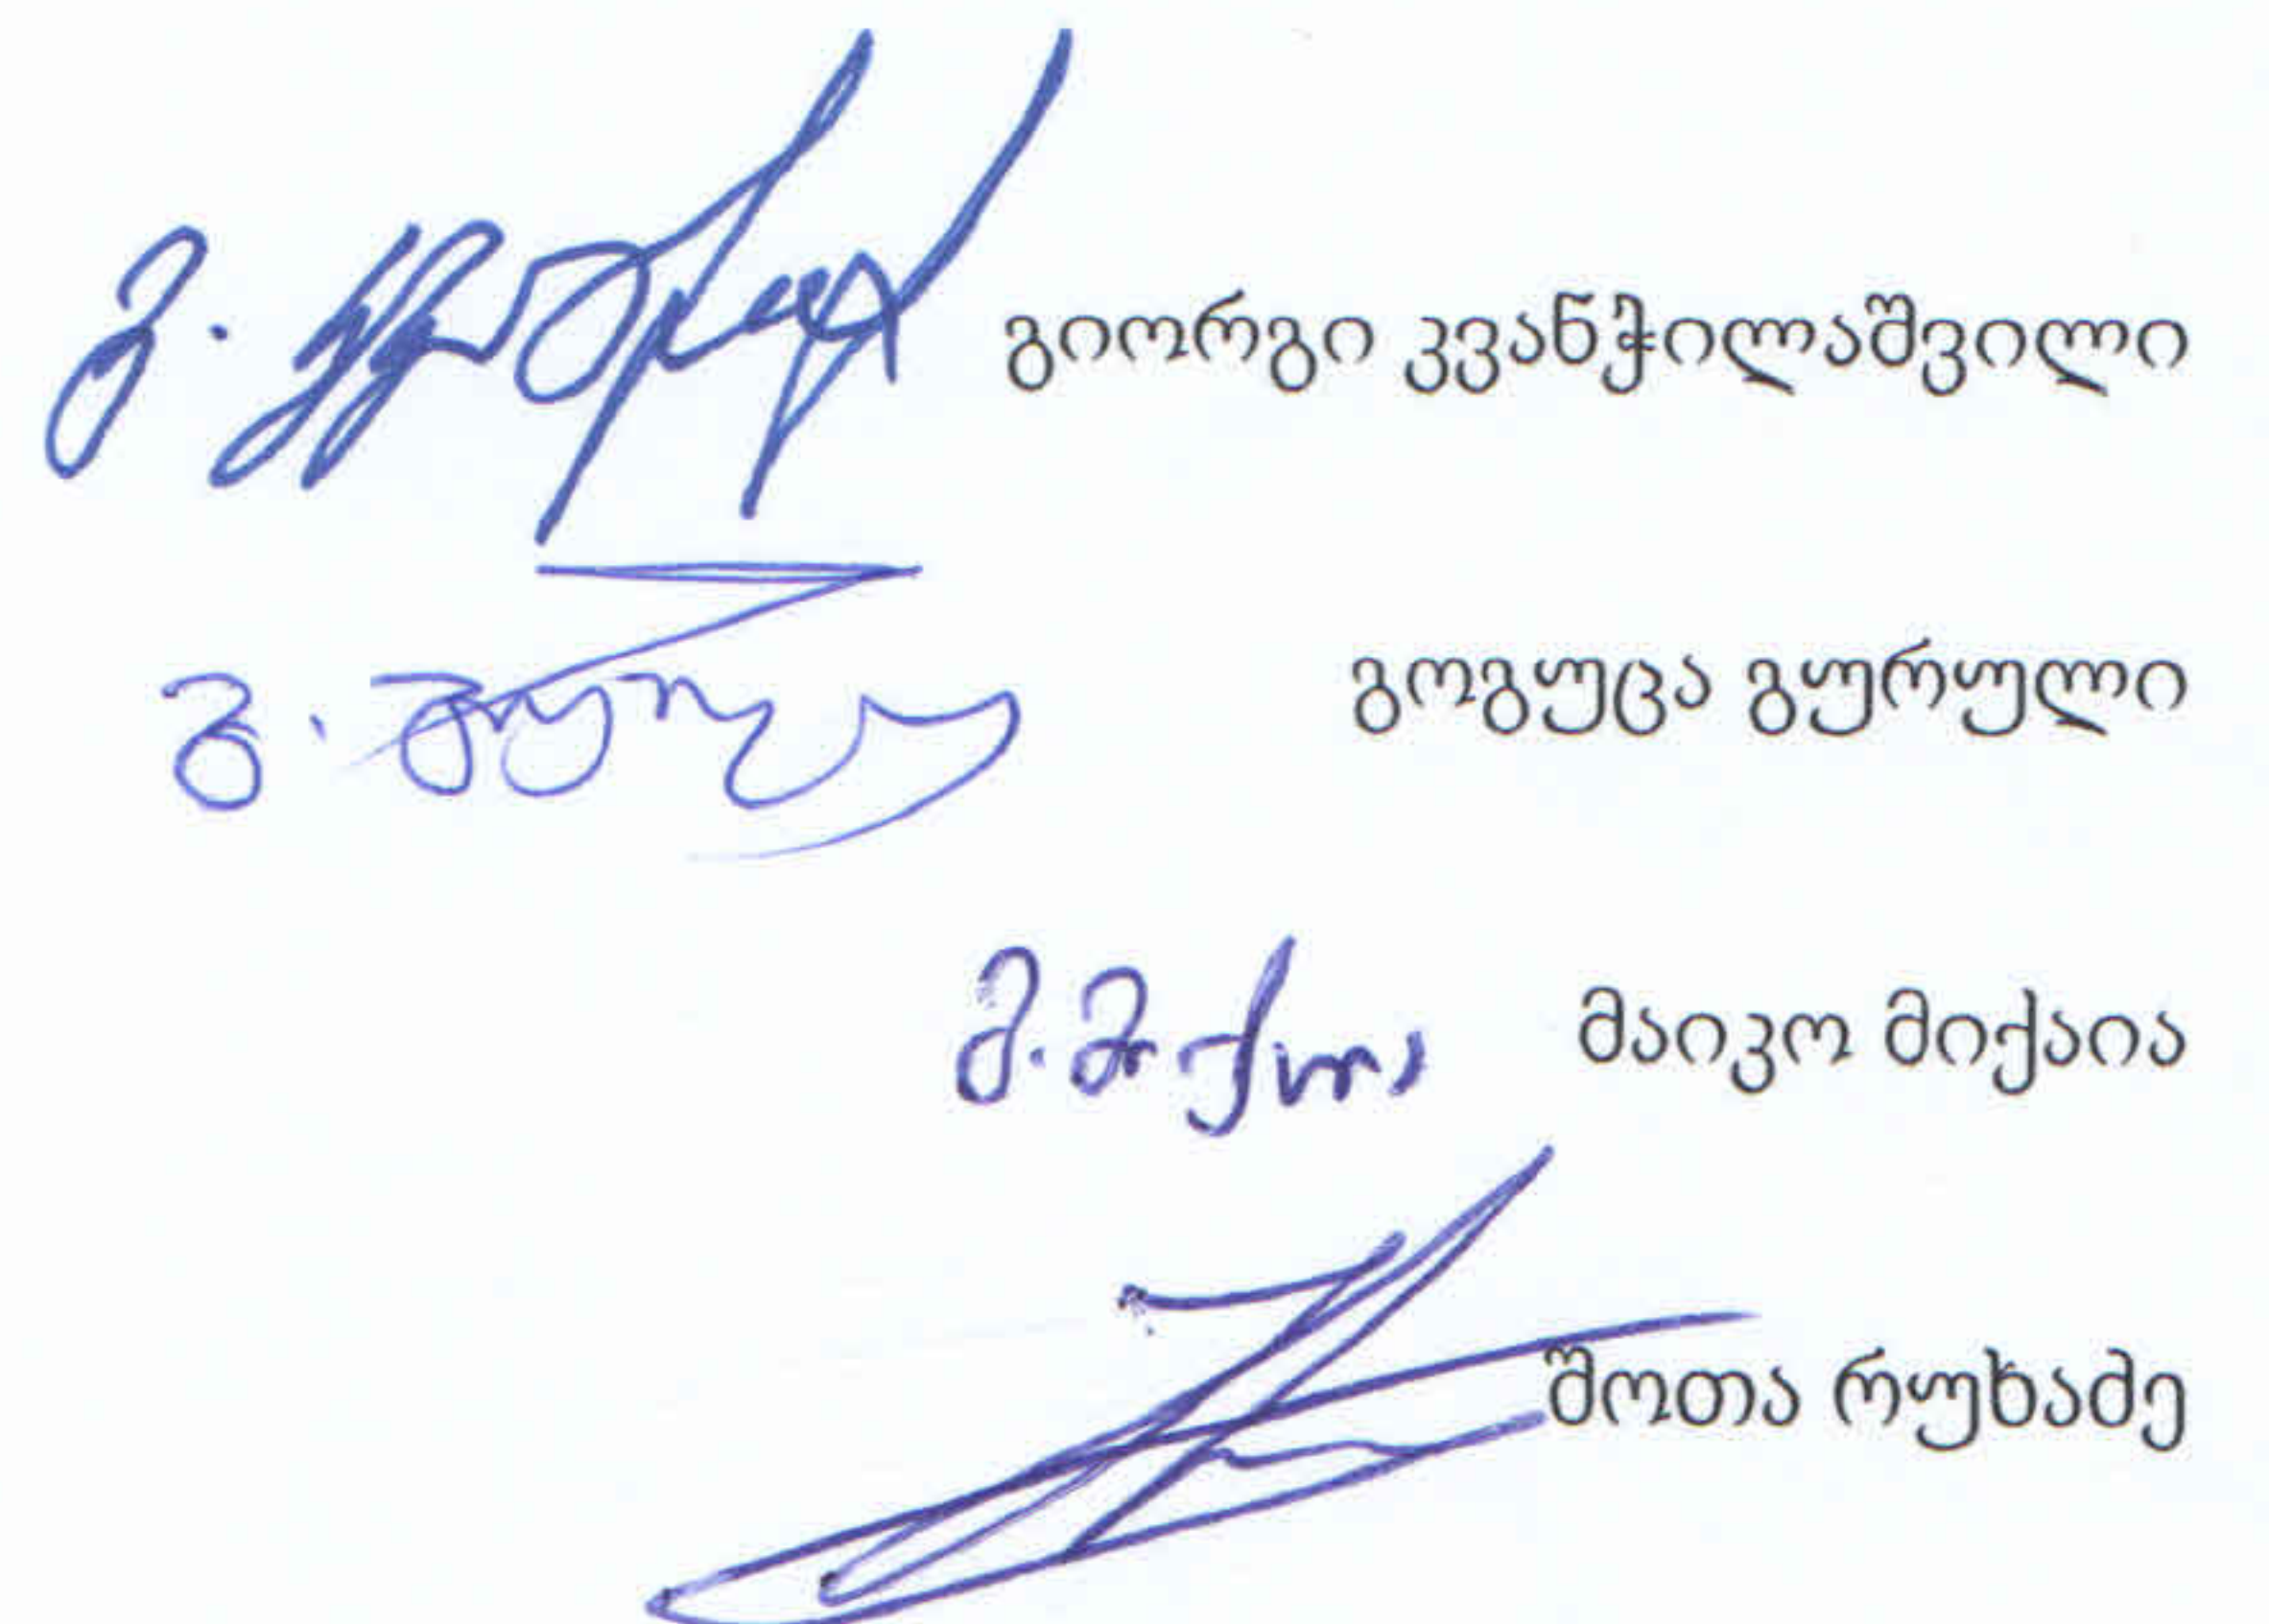 გიორგი კვანჭილაშვილი
გოგუცა გურული
მ. მიქაია მაიკო მიქაია
შოთა რუხაძე